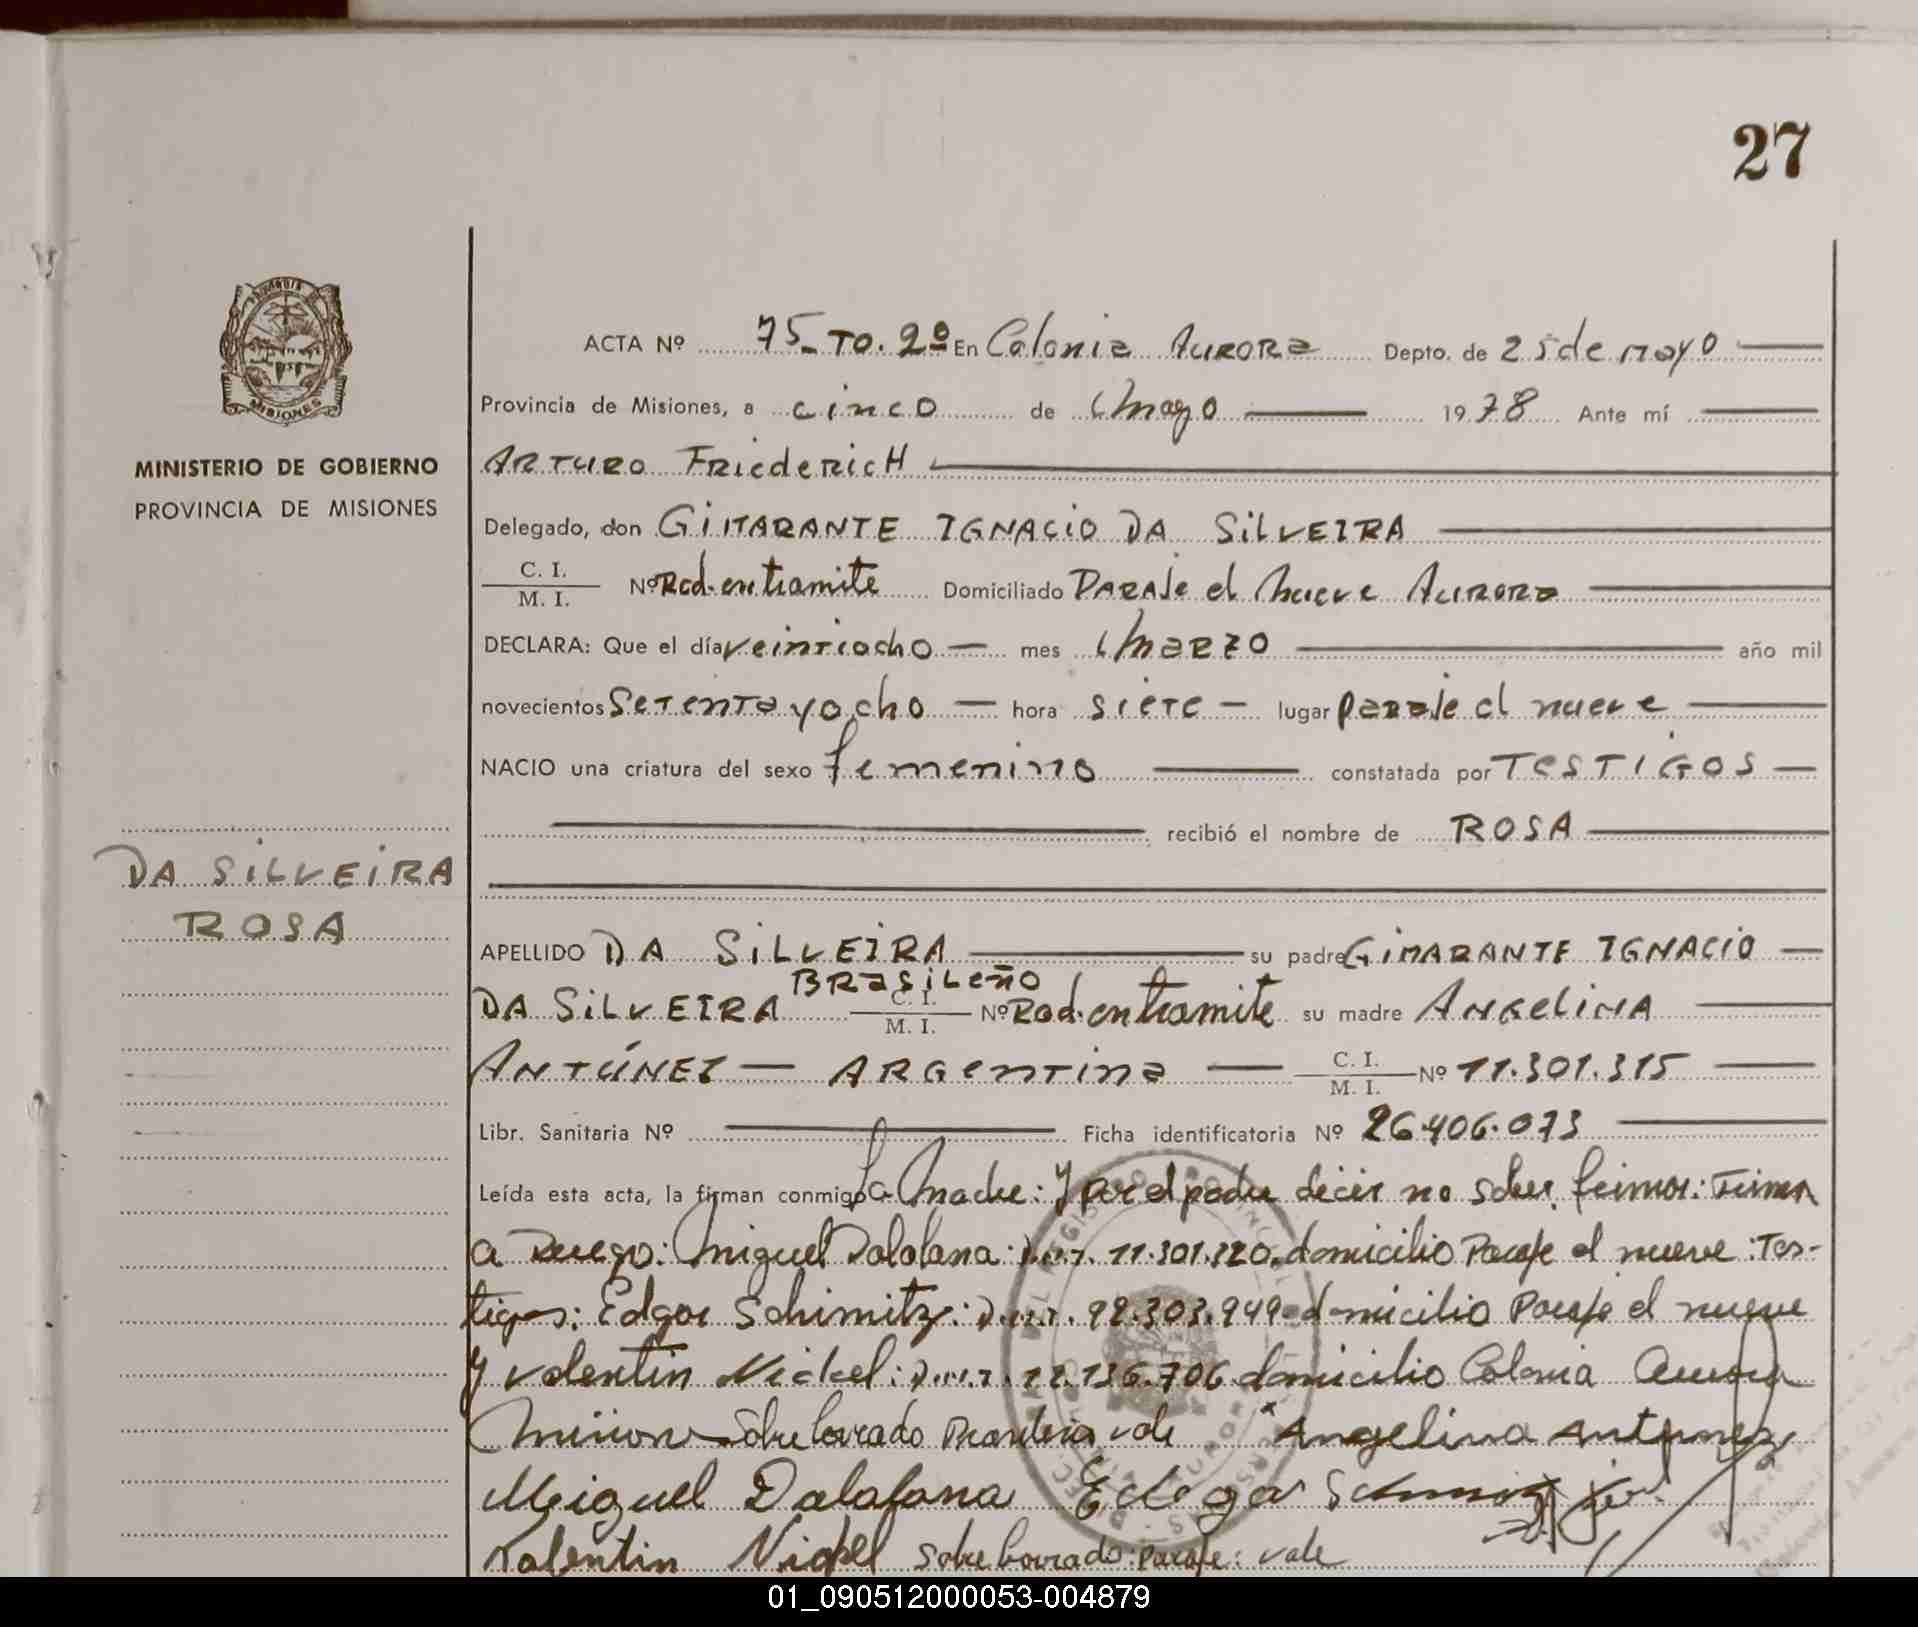 27
MISIONES
MINISTERIO DE GOBIERNO
PROVINCIA DE MISIONES
DA SILVEIRA
ROSA
ACTA Nº 75_ TO. 2º En Colonia AURORA Depto. de 25 de mayo
Provincia de Misiones, a cinco de Mayo 1978 Ante mí
ARTURO FRIEDERICH
Delegado, don GIMARANTE IGNACIO DA SILVEIRA
C. I.
M. I. Nº Rad. en tramite Domiciliado PARAJE el Nueve AURORA
DECLARA: Que el día veintiocho mes MARZO año mil
novecientos Setenta y ocho hora siete lugar paraje el nueve
NACIO una criatura del sexo femenino constatada por TESTIGOS
recibió el nombre de ROSA
APELLIDO DA SILVEIRA su padre GIMARANTE IGNACIO
DA SILVEIRA BRASILEÑO C. I. M. I. Nº Rad. en tramite su madre ANGELINA
ANTÚNEZ ARGENTINA C. I. M. I. Nº 11.301.315
Libr. Sanitaria Nº Ficha identificatoria Nº 26.406.073
Leída esta acta, la firman conmigo La Madre: y por el padre decir no saber firmar: Firma
a Ruego: Miguel Dalafana: 11.301.120. domicilio Paraje el nueve: Tes-
tigos: Edgar Schimitz: 92.303.949 domicilio Paraje el nueve
y Valentin Nickel: 12.136.706. domicilio Colonia Aurora
Misiones Sobre borrado vale Angelina Antunez
Miguel Dalafana Edgar Schmitz
Valentin Nickel sobre borrado: paraje: vale
01_090512000053-004879